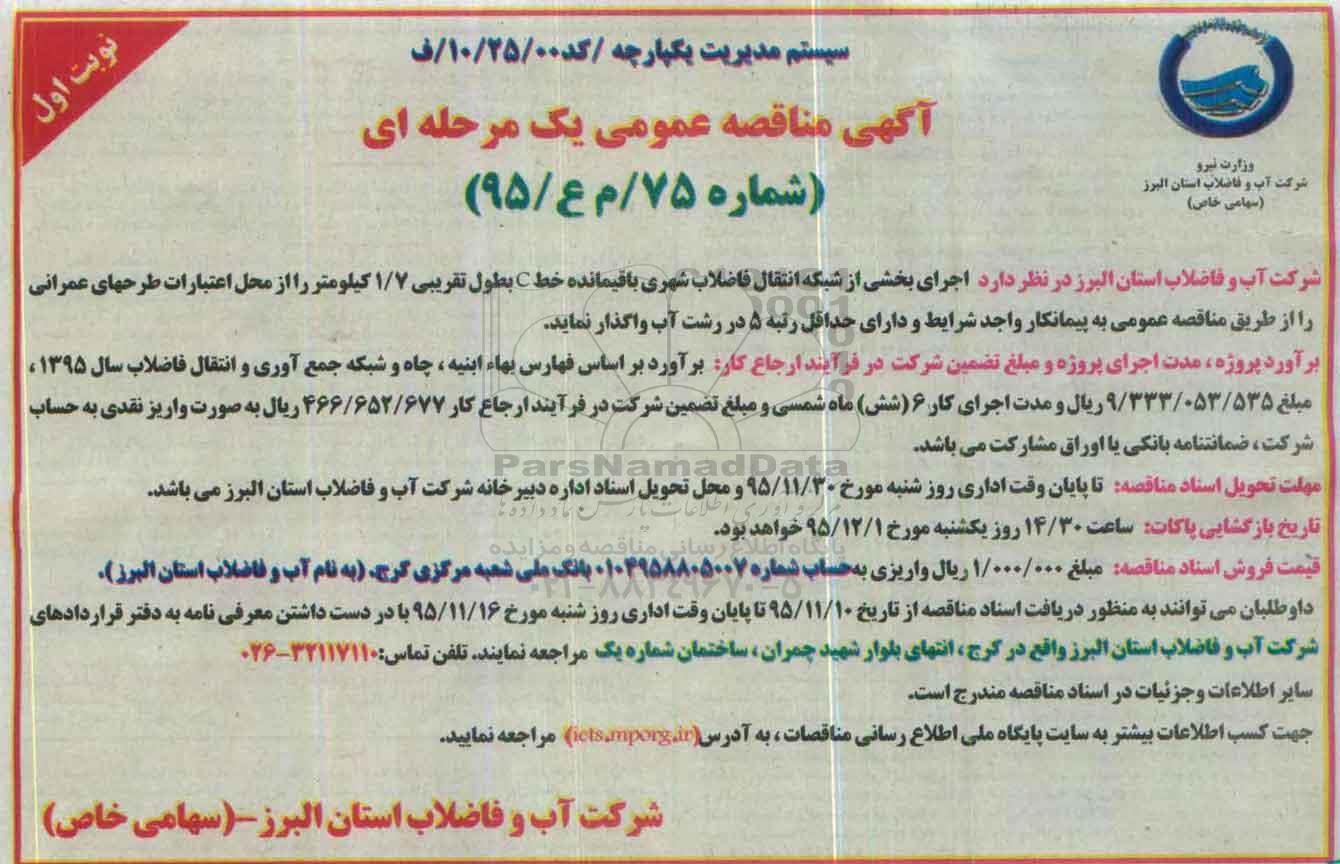 نوبت اول
سیستم مدیریت یکپارچه /کد۱۰/۲۵/۰۰/ف
آگهی مناقصه عمومی یک مرحله ای
(شماره ۷۵/م ع/۹۵)
وزارت نیرو
شرکت آب و فاضلاب استان البرز
(سهامی خاص)
شرکت آب و فاضلاب استان البرز در نظر دارد اجرای بخشی از شبکه انتقال فاضلاب شهری باقیمانده خط C بطول تقریبی ۱/۷ کیلومتر را از محل اعتبارات طرحهای عمرانی
را از طریق مناقصه عمومی به پیمانکار واجد شرایط و دارای حداقل رتبه ۵ در رشت آب واگذار نماید.
برآورد پروژه ، مدت اجرای پروژه و مبلغ تضمین شرکت در فرآیند ارجاع کار: برآورد بر اساس فهارس بهاء ابنیه ، چاه و شبکه جمع آوری و انتقال فاضلاب سال ۱۳۹۵ ،
مبلغ ۹/۳۳۳/۰۵۳/۵۳۵ ریال و مدت اجرای کار ۶ (شش) ماه شمسی و مبلغ تضمین شرکت در فرآیند ارجاع کار ۴۶۶/۶۵۲/۶۷۷ ریال به صورت واریز نقدی به حساب
شرکت ، ضمانتنامه بانکی یا اوراق مشارکت می باشد.
مهلت تحویل اسناد مناقصه: تا پایان وقت اداری روز شنبه مورخ ۹۵/۱۱/۳۰ و محل تحویل اسناد اداره دبیرخانه شرکت آب و فاضلاب استان البرز می باشد.
تاریخ بازگشایی پاکات: ساعت ۱۴/۳۰ روز یکشنبه مورخ ۹۵/۱۲/۱ خواهد بود.
قیمت فروش اسناد مناقصه: مبلغ ۱/۰۰۰/۰۰۰ ریال واریزی به حساب شماره ۰۱۰۴۹۵۸۸۰۵۰۰۷ بانک ملی شعبه مرکزی کرج. (به نام آب و فاضلاب استان البرز ).
داوطلبان می توانند به منظور دریافت اسناد مناقصه از تاریخ ۹۵/۱۱/۱۰ تا پایان وقت اداری روز شنبه مورخ ۹۵/۱۱/۱۶ با در دست داشتن معرفی نامه به دفتر قراردادهای
شرکت آب و فاضلاب استان البرز واقع در کرج ، انتهای بلوار شهید چمران ، ساختمان شماره یک مراجعه نمایند. تلفن تماس: ۳۲۱۱۷۱۱۰-۰۲۶
سایر اطلاعات وجزئیات در اسناد مناقصه مندرج است.
جهت کسب اطلاعات بیشتر به سایت پایگاه ملی اطلاع رسانی مناقصات ، به آدرس (iets.mporg.ir) مراجعه نمایید.
شرکت آب و فاضلاب استان البرز -(سهامی خاص)
ParsNamadData
پایگاه اطلاع رسانی مناقصه و مزایده
۰۲۱-۸۸۳۴۹۶۷۰-۵